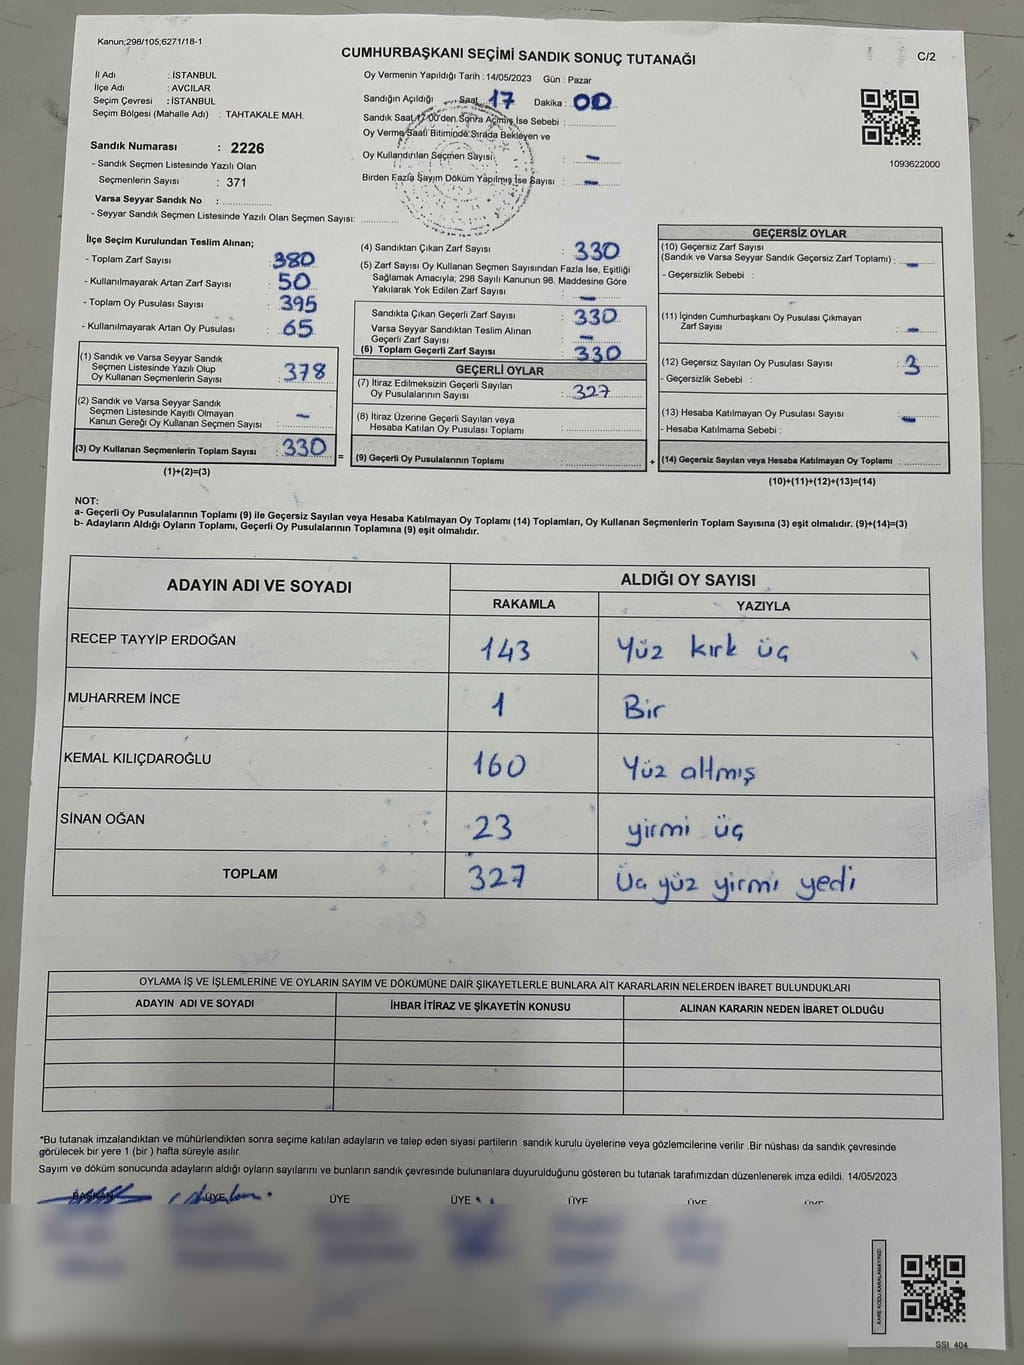 Kanun;298/105;6271/18-1
CUMHURBAŞKANI SEÇİMİ SANDIK SONUÇ TUTANAĞI
C/2
İl Adı : İSTANBUL
İlçe Adı : AVCILAR
Seçim Çevresi : İSTANBUL
Seçim Bölgesi (Mahalle Adı) : TAHTAKALE MAH.
Sandık Numarası : 2226
- Sandık Seçmen Listesinde Yazılı Olan
Seçmenlerin Sayısı : 371
Varsa Seyyar Sandık No :
- Seyyar Sandık Seçmen Listesinde Yazılı Olan Seçmen Sayısı:
Oy Vermenin Yapıldığı Tarih : 14/05/2023 Gün : Pazar
Sandığın Açıldığı Saat 17 Dakika : 00
Sandık Saat 17:00'den Sonra Açılmış İse Sebebi :
Oy Verme Saati Bitiminde Sırada Bekleyen ve
Oy Kullandırılan Seçmen Sayısı : -
Birden Fazla Sayım Döküm Yapılmış İse Sayısı : -
1093622000
İlçe Seçim Kurulundan Teslim Alınan;
- Toplam Zarf Sayısı : 380
- Kullanılmayarak Artan Zarf Sayısı : 50
- Toplam Oy Pusulası Sayısı : 395
- Kullanılmayarak Artan Oy Pusulası : 65
(1) Sandık ve Varsa Seyyar Sandık
Seçmen Listesinde Yazılı Olup
Oy Kullanan Seçmenlerin Sayısı : 378
(2) Sandık ve Varsa Seyyar Sandık
Seçmen Listesinde Kayıtlı Olmayan
Kanun Gereği Oy Kullanan Seçmen Sayısı : -
(3) Oy Kullanan Seçmenlerin Toplam Sayısı : 330
(1)+(2)=(3)
(4) Sandıktan Çıkan Zarf Sayısı : 330
(5) Zarf Sayısı Oy Kullanan Seçmen Sayısından Fazla İse, Eşitliği
Sağlamak Amacıyla; 298 Sayılı Kanunun 98. Maddesine Göre
Yakılarak Yok Edilen Zarf Sayısı : -
Sandıkta Çıkan Geçerli Zarf Sayısı : 330
Varsa Seyyar Sandıktan Teslim Alınan
Geçerli Zarf Sayısı : -
(6) Toplam Geçerli Zarf Sayısı : 330
GEÇERLİ OYLAR
(7) İtiraz Edilmeksizin Geçerli Sayılan
Oy Pusulalarının Sayısı : 327
(8) İtiraz Üzerine Geçerli Sayılan veya
Hesaba Katılan Oy Pusulası Toplamı :
= (9) Geçerli Oy Pusulalarının Toplamı :
GEÇERSİZ OYLAR
(10) Geçersiz Zarf Sayısı
(Sandık ve Varsa Seyyar Sandık Geçersiz Zarf Toplamı) : -
- Geçersizlik Sebebi :
(11) İçinden Cumhurbaşkanı Oy Pusulası Çıkmayan
Zarf Sayısı : -
(12) Geçersiz Sayılan Oy Pusulası Sayısı : 3
- Geçersizlik Sebebi :
(13) Hesaba Katılmayan Oy Pusulası Sayısı : -
- Hesaba Katılmama Sebebi :
+ (14) Geçersiz Sayılan veya Hesaba Katılmayan Oy Toplamı :
(10)+(11)+(12)+(13)=(14)
NOT:
a- Geçerli Oy Pusulalarının Toplamı (9) ile Geçersiz Sayılan veya Hesaba Katılmayan Oy Toplamı (14) Toplamları, Oy Kullanan Seçmenlerin Toplam Sayısına (3) eşit olmalıdır. (9)+(14)=(3)
b- Adayların Aldığı Oyların Toplamı, Geçerli Oy Pusulalarının Toplamına (9) eşit olmalıdır.
ADAYIN ADI VE SOYADI ALDIĞI OY SAYISI
RAKAMLA YAZIYLA
RECEP TAYYİP ERDOĞAN 143 Yüz kırk üç
MUHARREM İNCE 1 Bir
KEMAL KILIÇDAROĞLU 160 Yüz altmış
SİNAN OĞAN 23 yirmi üç
TOPLAM 327 Üç yüz yirmi yedi
OYLAMA İŞ VE İŞLEMLERİNE VE OYLARIN SAYIM VE DÖKÜMÜNE DAİR ŞİKAYETLERLE BUNLARA AİT KARARLARIN NELERDEN İBARET BULUNDUKLARI
ADAYIN ADI VE SOYADI İHBAR İTİRAZ VE ŞİKAYETİN KONUSU ALINAN KARARIN NEDEN İBARET OLDUĞU
*Bu tutanak imzalandıktan ve mühürlendikten sonra seçime katılan adayların ve talep eden siyasi partilerin sandık kurulu üyelerine veya gözlemcilerine verilir .Bir nüshası da sandık çevresinde
görülecek bir yere 1 (bir ) hafta süreyle asılır.
Sayım ve döküm sonucunda adayların aldığı oyların sayılarını ve bunların sandık çevresinde bulunanlara duyurulduğunu gösteren bu tutanak tarafımızdan düzenlenerek imza edildi. 14/05/2023
BAŞKAN ÜYE ÜYE ÜYE ÜYE ÜYE ÜYE
KARE KODU KARALAMAYINIZ!
SSI_404